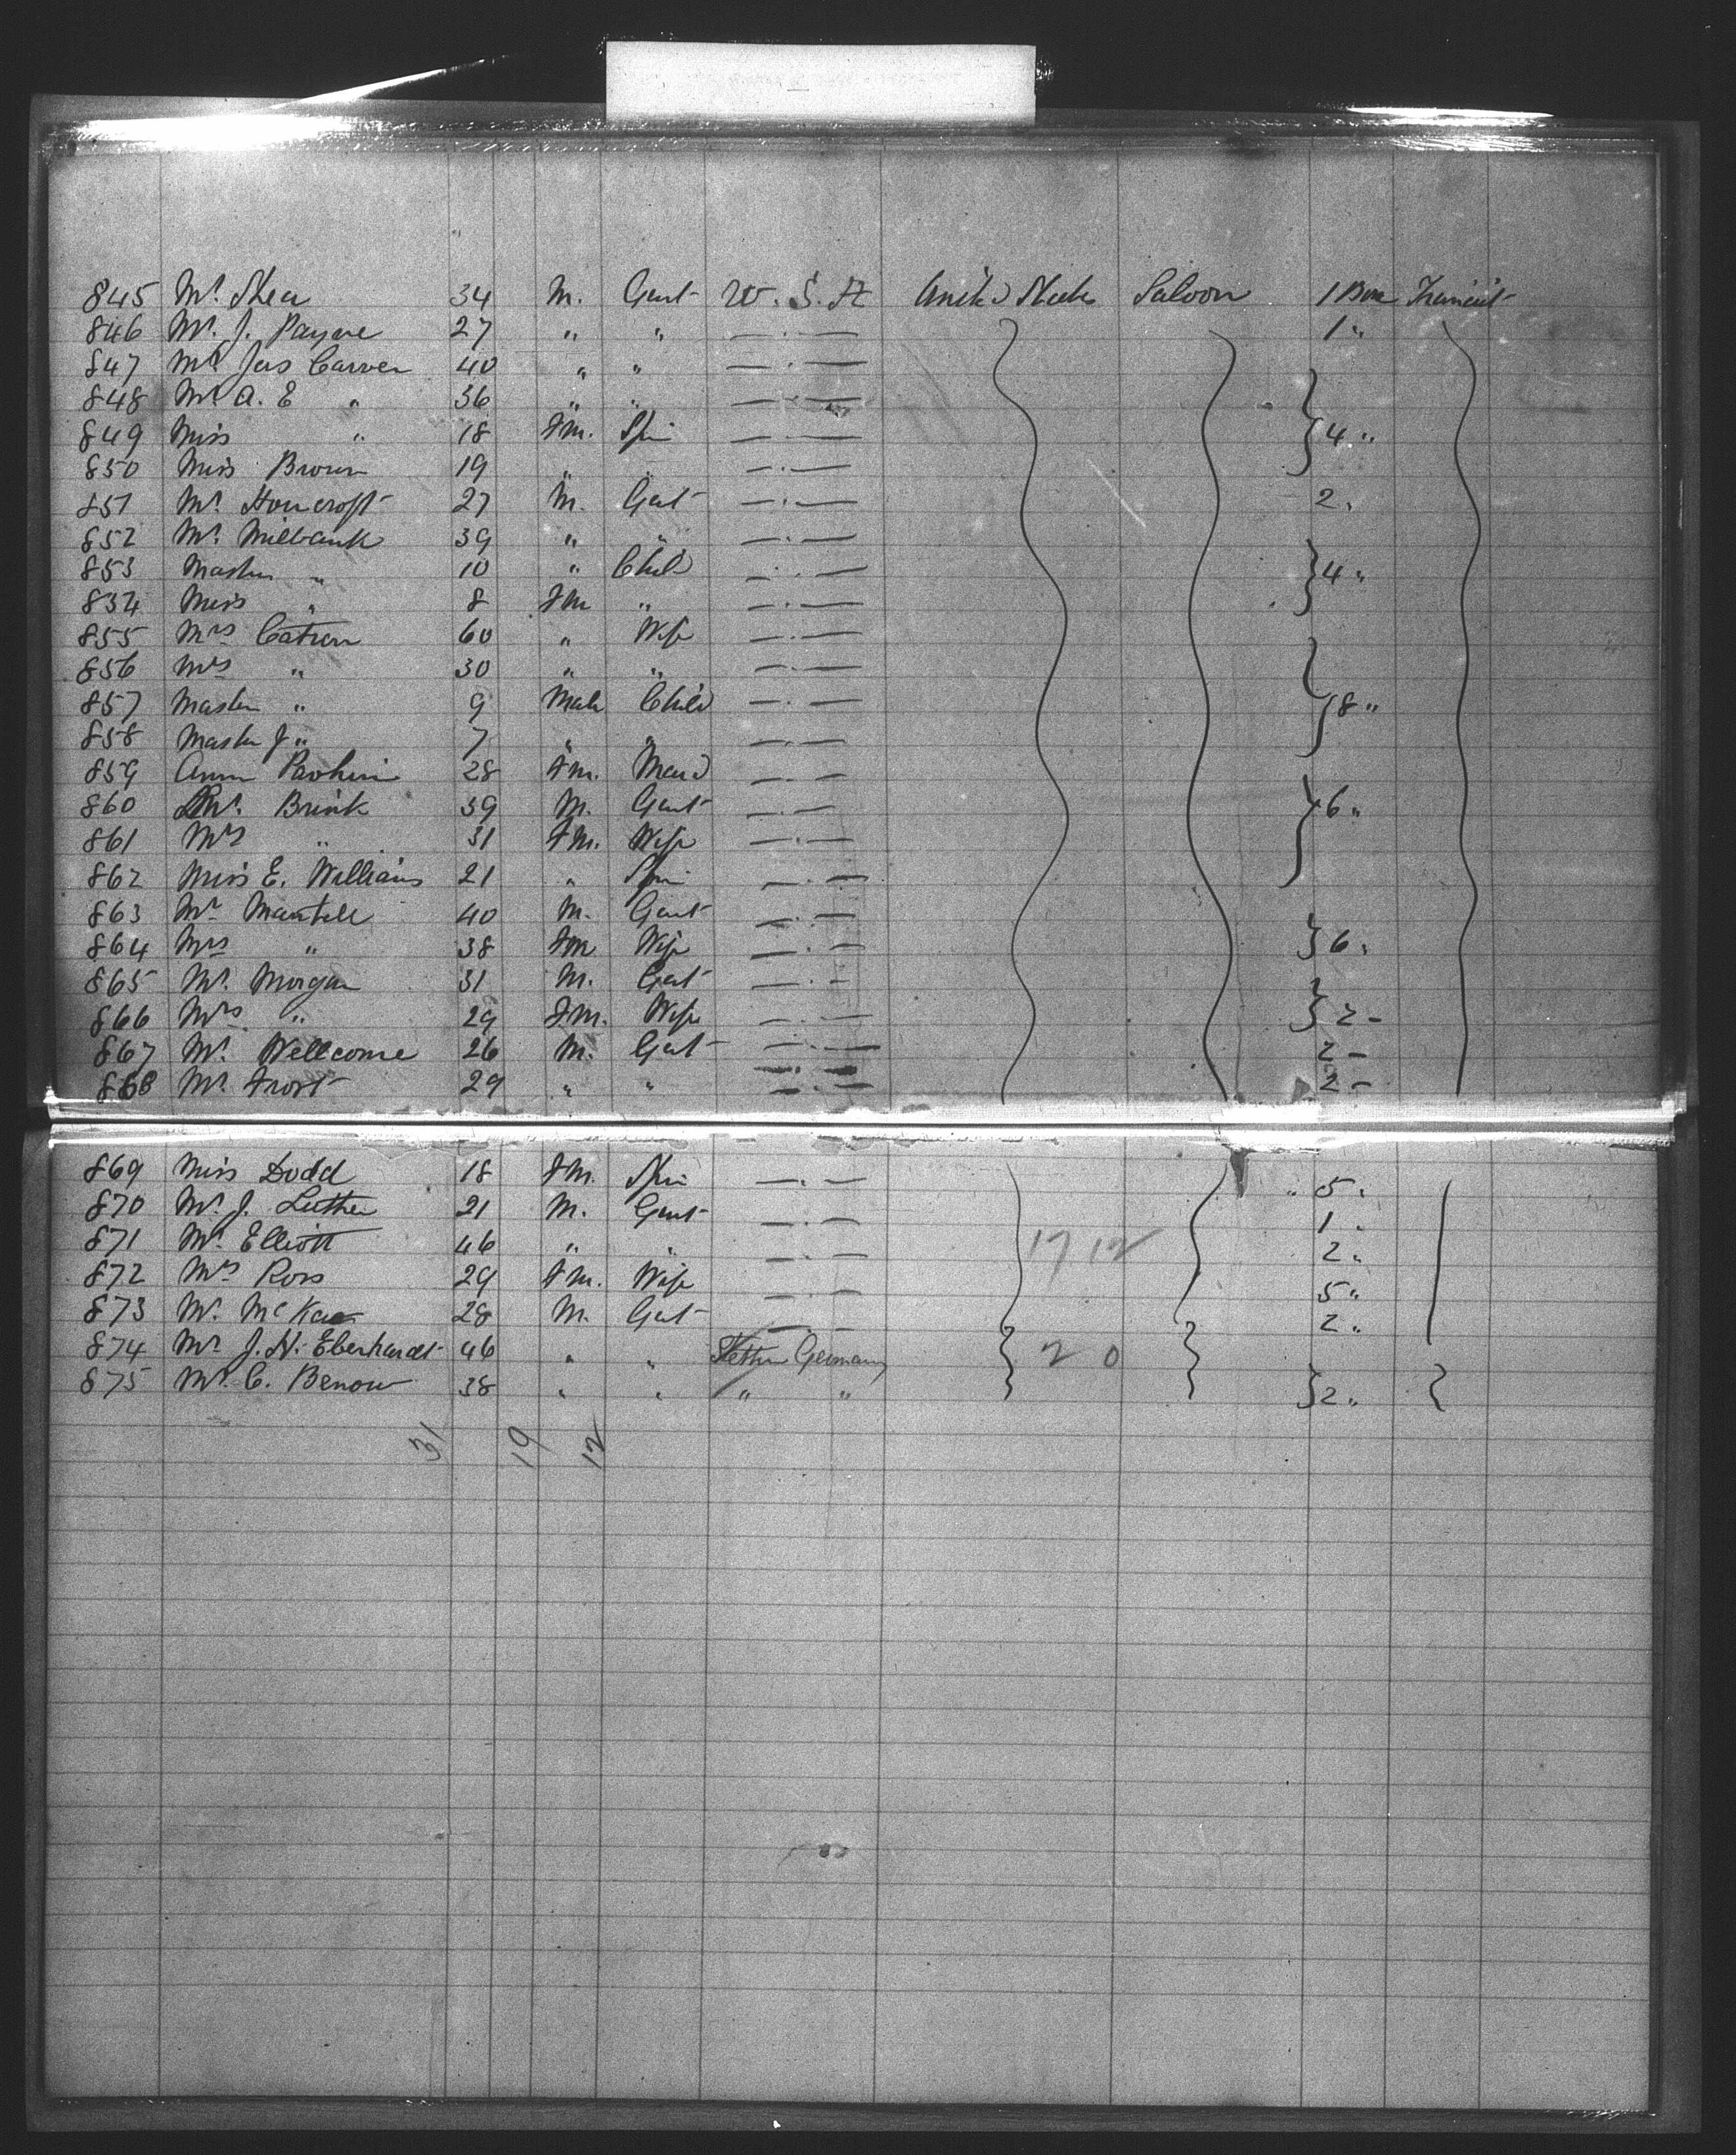 845 Mr. Shea 34 M. Gent U. S. A United States Saloon 1 Box Transient
846 Mr. J. Payne 27 " " —·— 1 "
847 Mr. Jas Carver 40 " " —·—
848 Mr. A. E " 36 " " —·—
849 Miss " 18 Fm. Spin —·— } 4 "
850 Miss Brown 19 " " —·—
851 Mr. 27 M. Gent —·— 2 "
852 Mr. Milbank 39 " " —·—
853 Master " 10 " Child —·— } 4 "
834 Miss " 8 Fm " —·—
855 Mrs Catron 60 " Wife —·—
856 Mrs " 30 " " —·—
857 Master " 9 Male Child —·— } 8 "
858 Master J " 7 " " —·—
859 Ann 28 Fm. Maid —·—
860 Mr. Brink 39 M. Gent —·— } 6 "
861 Mrs " 31 Fm. Wife —·—
862 Miss E. Williams 21 " Spin —·—
863 Mr Mantell 40 M. Gent —·—
864 Mrs " 38 Fm Wife —·— } 6 "
865 Mr. Morgan 31 M. Gent —·—
866 Mrs " 29 Fm. Wife —·— } 2 –
867 Mr. Wellcome 26 M. Gent —·— 2 –
868 Mr. Frost 29 " " —·— 2 –
869 Miss Dodd 18 Fm. Spin —·— " 5 "
870 Mr. J. Luther 21 M. Gent —·— 1 "
871 Mr. Elliott 46 " " —·— 17 12 2 "
872 Mrs Ross 29 Fm. Wife —·— 5 "
873 Mr. McKae 28 M. Gent —·— 2 "
874 Mr J. H. Eberhardt 46 " " Stettin Germany 2 0
875 Mr. C. Benow 38 " " " " } 2 "
31 19 12